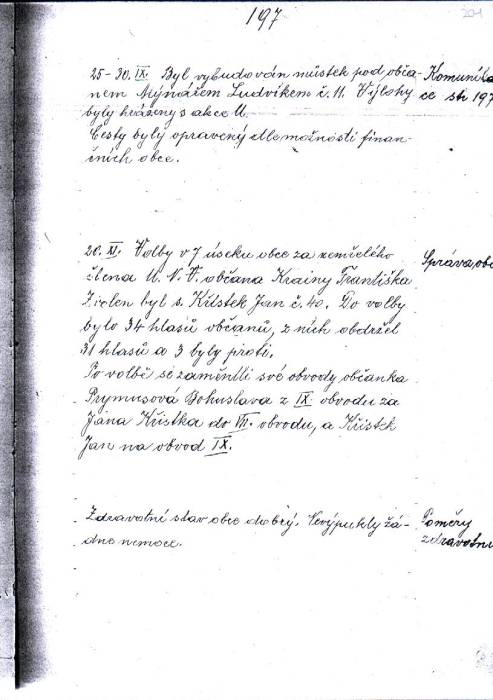 197
204
25-30. IX. Byl vybudován můstek pod obča-
nem Mynářem Ludvíkem č. 11. Výlohy
byly hrazeny s akce M.
Cesty byly opraveny dle možnosti finan-
čních obce.
Komunika
ce str 197
20. XI. Volby v 7 úseku obce za zemřelého
člena M. N. V. občana Krainy Františka
Zvolen byl s. Křístek Jan č. 40. Do volby
bylo 34 hlasů občanů, z nich obdržel
31 hlasů a 3 byly proti.
Po volbě se zaměnili své obvody občanka
Prymusová Bohuslava z IX. obvodu za
Jána Křístka do VII. obvodu, a Křístek
Jan na obvod IX.
Správa obc
Zdravotní stav obce dobrý. Nevýpukly žá-
dne nemoce.
Poměry
zdravotní